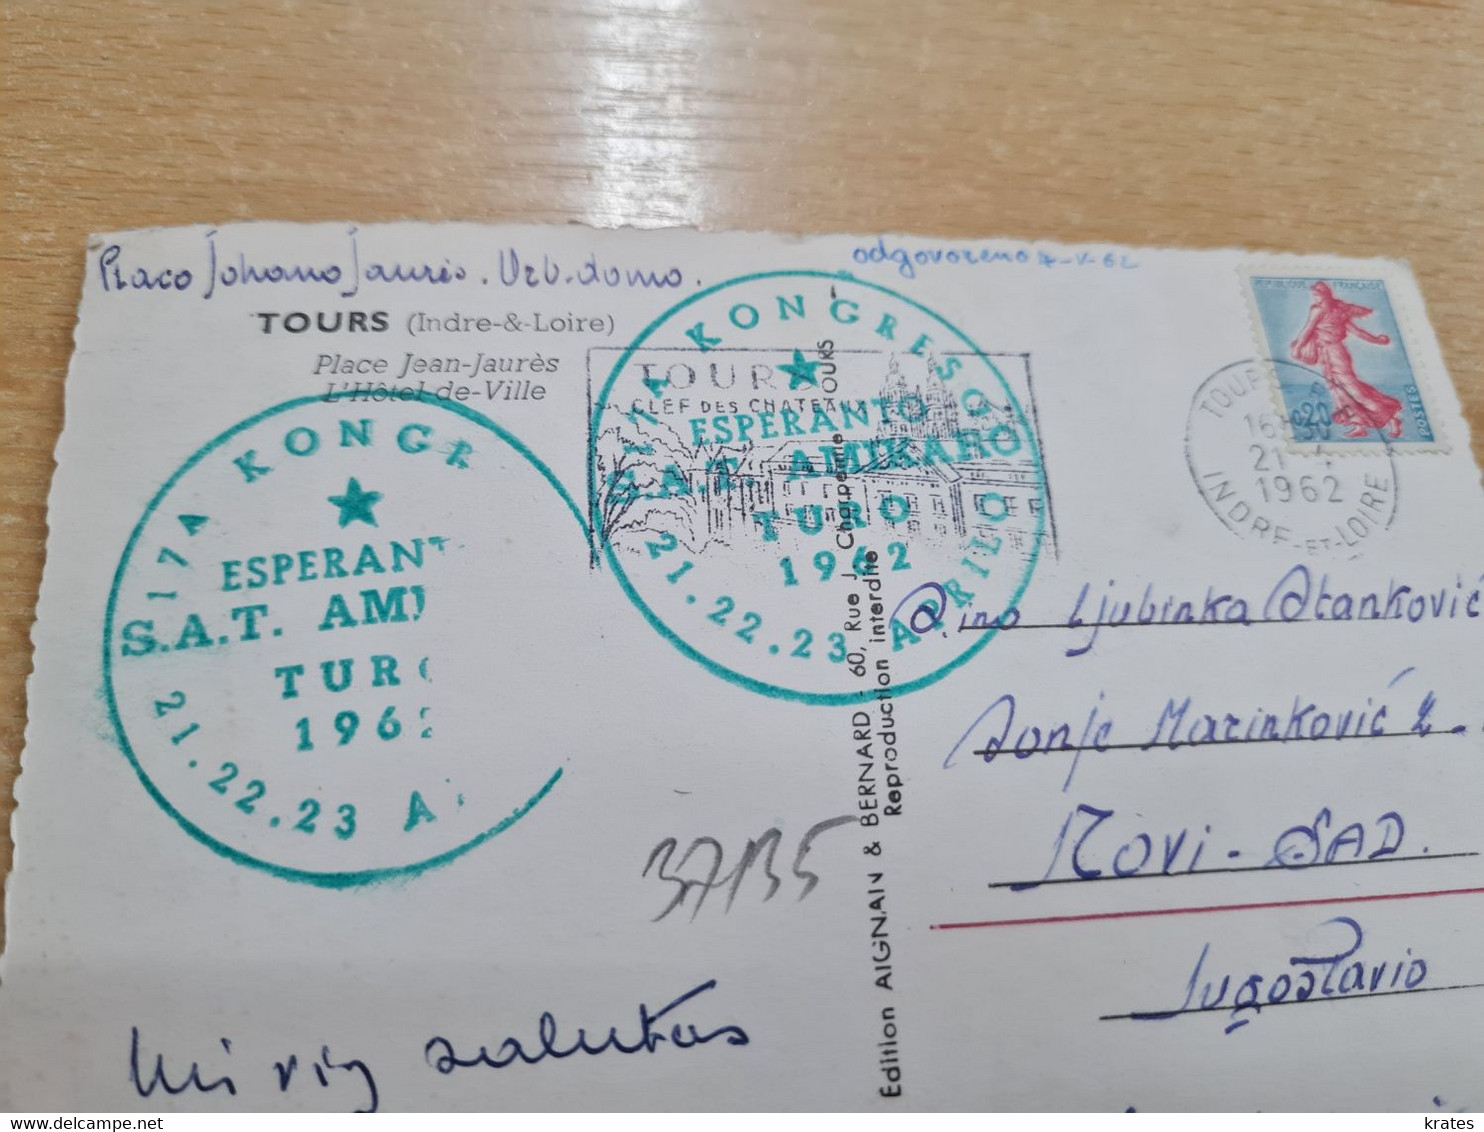 Placo Johano Jaurès. Urb-domo.
odgovoreno 7-V-62
TOURS (Indre-&-Loire)
Place Jean-Jaurès
L'Hôtel de-Ville
17A KONGR
ESPERANT
S.A.T. AMI
TURO
1962
21.22.23 A
17A KONGRESO
ESPERANTO
S.A.T. AMIKARO
TURO
1962
21.22.23 APRILO
TOURS
CLEF DES CHATEAUX
REPUBLIQUE FRANÇAISE
0,20
POSTES
TOURS
16H
21-4
1962
INDRE-ET-LOIRE
Edition AIGNAN & BERNARD - 60, Rue J. Chapentie TOURS
Reproduction interdite
S.ino Ljubinka Stanković
Donje Marinković 2
NOVI-SAD.
Jugoslavio
37135
Mi vin salutas
krates